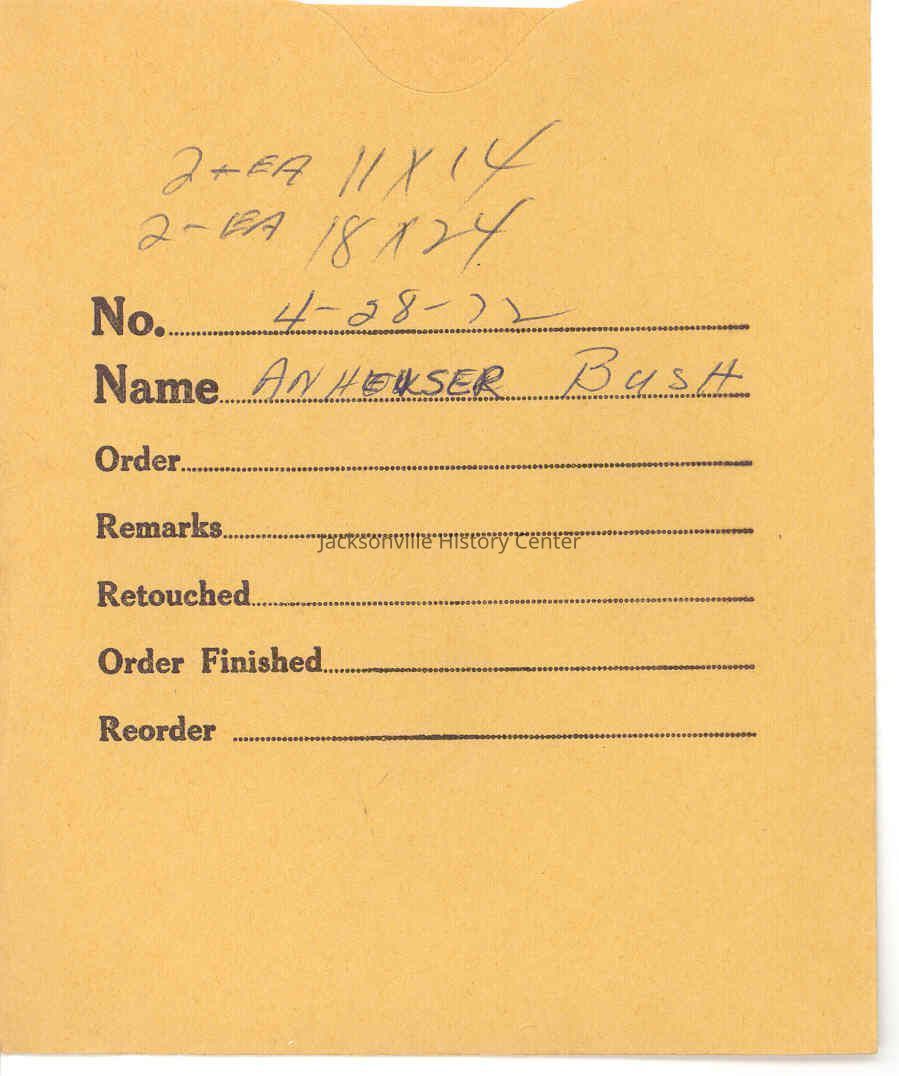 2-EA 11X14
2-EA 18X24
No. 4-28-72
Name ANHEUSER BUSH
Order
Remarks
Jacksonville History Center
Retouched
Order Finished
Reorder